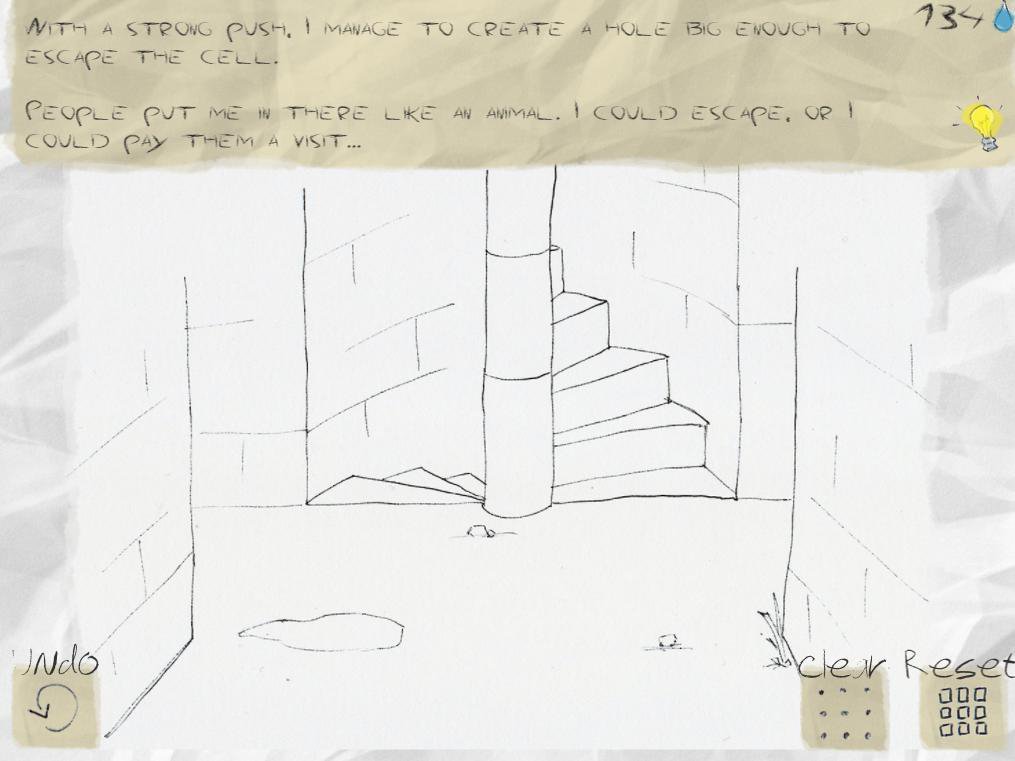 WITH A STRONG PUSH, I MANAGE TO CREATE A HOLE BIG ENOUGH TO
ESCAPE THE CELL.
PEOPLE PUT ME IN THERE LIKE AN ANIMAL. I COULD ESCAPE, OR I
COULD PAY THEM A VISIT...
134
UNdo
Clear
Reset